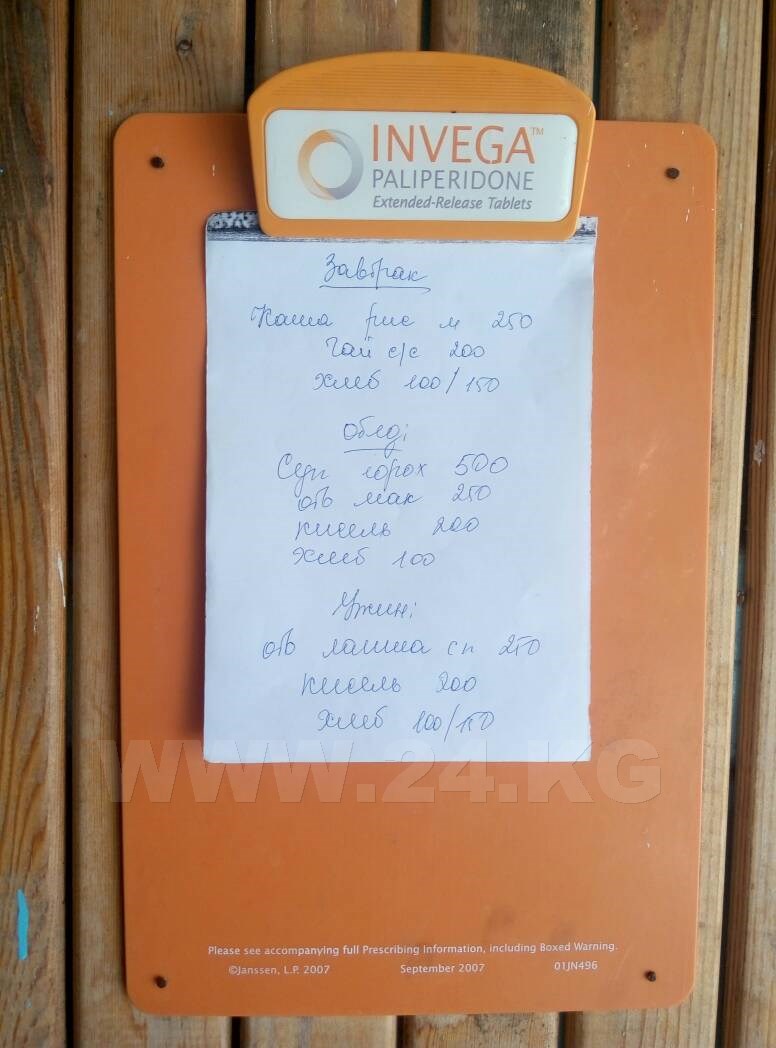 INVEGA™
PALIPERIDONE
Extended-Release Tablets
Завтрак
Каша рис м 250
Чай с/с 200
Хлеб 100/150
Обед:
Суп горох 500
отв мак 250
кисель 200
Хлеб 100
Ужин:
отв лапша сп 250
кисель 200
Хлеб 100/150
WWW.24.KG
Please see accompanying full Prescribing Information, including Boxed Warning.
©Janssen, L.P. 2007 September 2007 01JN496